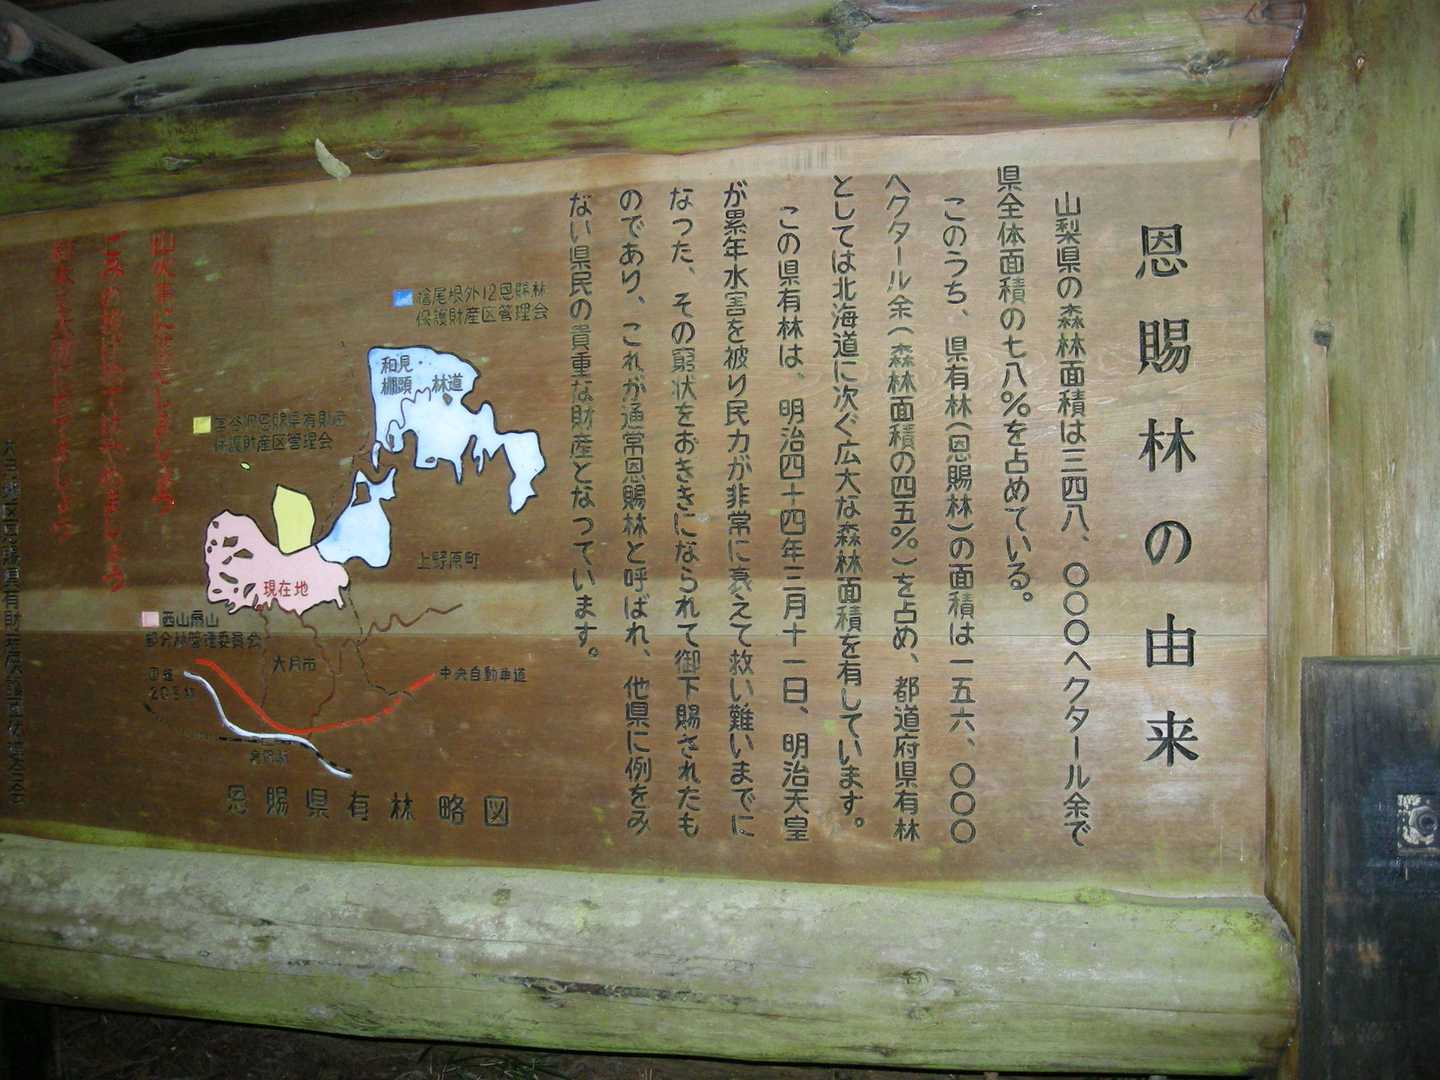 恩賜林の由来
山梨県の森林面積は三四八、〇〇〇ヘクタール余で
県全体面積の七八％を占めている。
このうち、県有林（恩賜林）の面積は一五六、〇〇〇
ヘクタール余（森林面積の四五％）を占め、都道府県有林
としては北海道に次ぐ広大な森林面積を有しています。
この県有林は、明治四十四年三月十一日、明治天皇
が累年水害を被り民力が非常に衰えて救い難いまでに
なった、その窮状をおききになられて御下賜されたも
のであり、これが通常恩賜林と呼ばれ、他県に例をみ
ない県民の貴重な財産となっています。
尾根外12恩賜林
保護財産区管理会
和見・
棚頭 林道
恩賜県有財産
保護財産区管理会
上野原町
現在地
西山扇山
部分林管理委員会
大月市
中央自動車道
20号線
恩賜県有林略図
山火事に注意しましょう